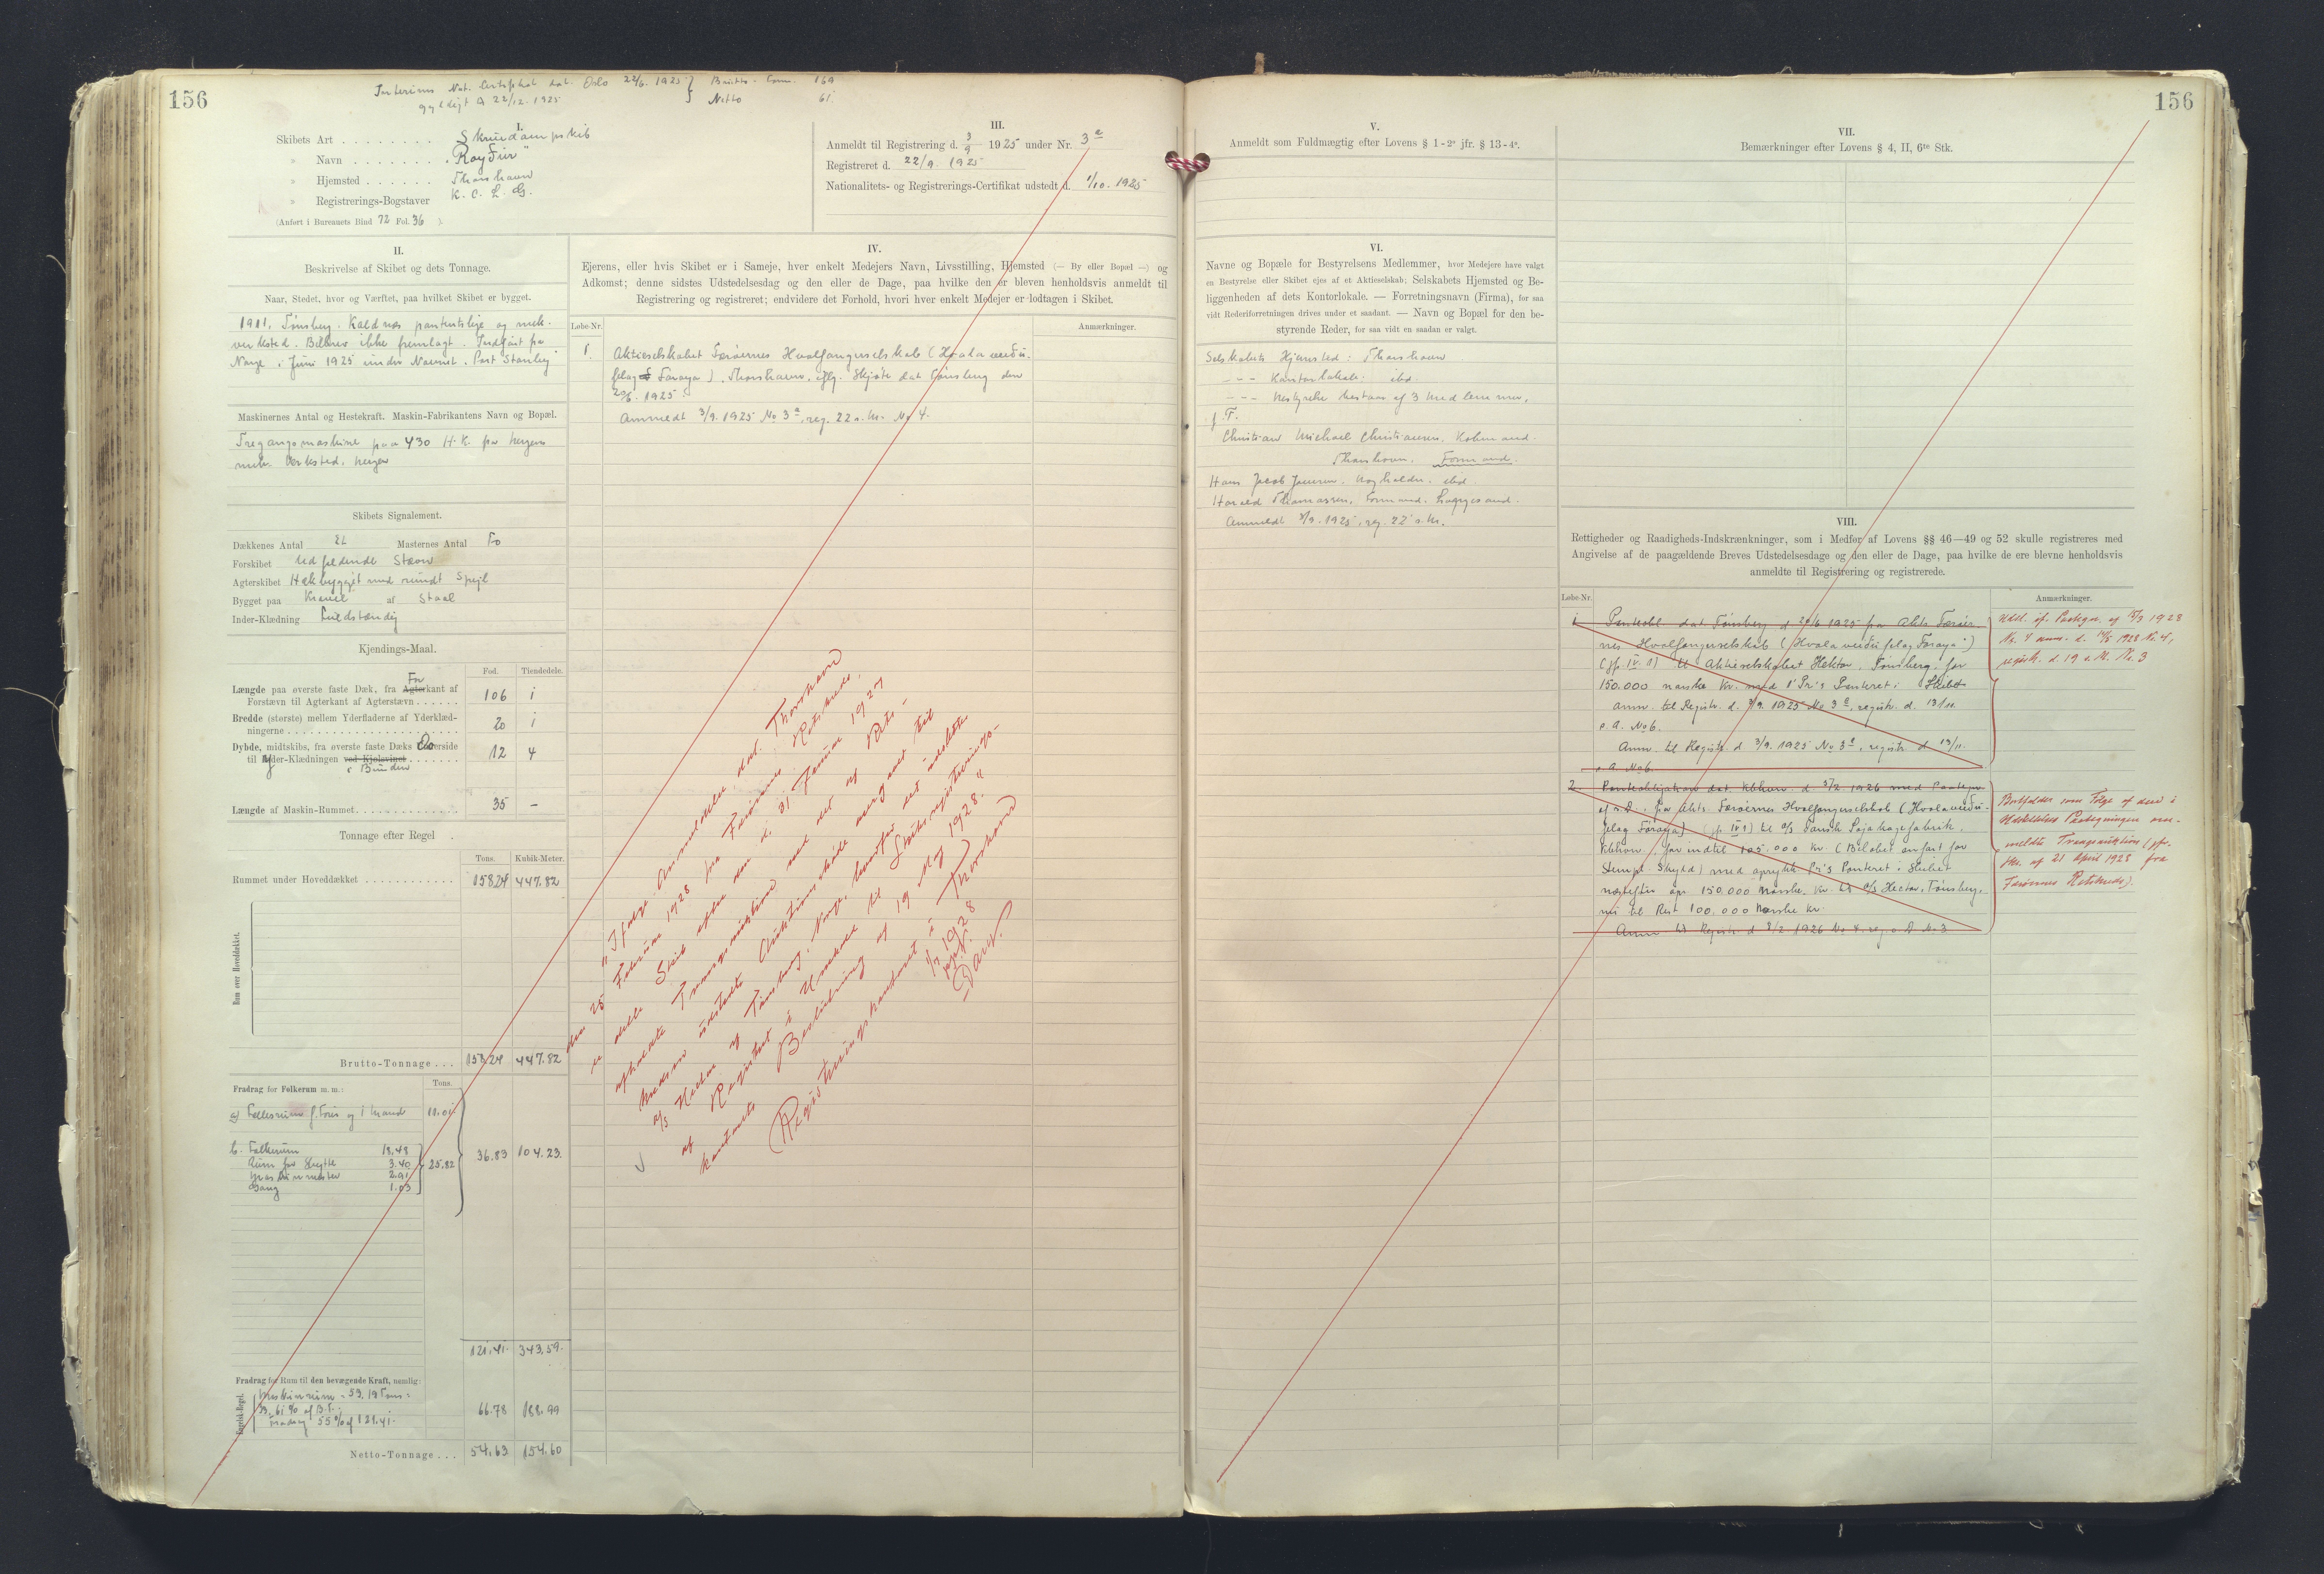 156
Interims Nat. Certifikat dat. Oslo 22/6. 1925 } Brutto - Tonn. 169
gyldigt til 22/12. 1925 } Netto 61.
I.
Skibets Art . . . . . . . . Skruedampskib
" Navn . . . . . . . "Roy Fur"
" Hjemsted . . . . . . Thorshavn
" Registrerings-Bogstaver K. C. L. G.
(Anført i Bureauets Bind 72 Fol. 36 ).
III.
Anmeldt til Registrering d. 3/9 1925 under Nr. 3 a
Registreret d. 22/9. 1925
Nationalitets- og Registrerings-Certifikat udstedt d. 1/10. 1925
II.
Beskrivelse af Skibet og dets Tonnage.
Naar, Stedet, hvor og Værftet, paa hvilket Skibet er bygget.
1911. Tønsberg. Kaldnæs patentslip og mek.
verksted. Bilbrev ikke fremlagt. Indført fra
Norge i Juni 1925 under Navnet "Port Stanley"
Maskinernes Antal og Hestekraft. Maskin-Fabrikantens Navn og Bopæl.
Tregangsmaskine paa 430 H.K. fra Bergens
mek. Verksted, Bergen
Skibets Signalement.
Dækkenes Antal Et Masternes Antal To
Forskibet Udfaldende Stævn
Agterskibet Hækbygget med rundt Spejl
Bygget paa Kravel af Staal
Inder-Klædning Fuldstændig
Kjendings-Maal.
Fod. Tiendedele.
Længde paa øverste faste Dæk, fra Agterkant af For
Forstævn til Agterkant af Agterstævn . . . . . . 106 1
Bredde (største) mellem Yderfladerne af Yderklæd-
ningerne . . . . . . 20 1
Dybde, midtskibs, fra øverste faste Dæks Overside
til Yder-Klædningen ved Kjølsvinet . . . . . . 12 4
i Bunden
Længde af Maskin-Rummet . . . . . . 35 –
Tonnage efter Regel .
Tons. Kubik-Meter.
Rummet under Hoveddækket . . . . . . 158.24 447.82
Rum over Hoveddækket.
Brutto-Tonnage . . . 158.24 447.82
Fradrag for Folkerum m. m.: Tons.
a) Fællesrum f. Fører og 1 Mand 11.01
b. Folkerum 18.48
Rum for Skytte 3.40 } 25.82 36.83 104.23.
Maskinmester 2.91
Gang 1.03
121.41. 343.59.
Fradrag for Rum til den bevægende Kraft, nemlig:
Engelsk Regel.
Maskinrum = 53.19 Tons =
33.61 % af B.T.:
Fradrag 55 % af 121.41.
66.78 188.99
Netto-Tonnage . . . 54.63 154.60
IV.
Ejerens, eller hvis Skibet er i Sameje, hver enkelt Medejers Navn, Livsstilling, Hjemsted (— By eller Bopæl —) og
Adkomst; denne sidstes Udstedelsesdag og den eller de Dage, paa hvilke den er bleven henholdsvis anmeldt til
Registrering og registreret; endvidere det Forhold, hvori hver enkelt Medejer er lodtagen i Skibet.
Løbe-Nr. Anmærkninger.
1. Aktieselskabet Færøernes Hvalfangerselskab (Hvalaveiðu-
felag Føroya), Thorshavn, iflg. Skjøde dat Tønsberg den
20/6. 1925.
Anmeldt 3/9. 1925 No 3 a, reg. 22 s. M. No 4.
"Ifølge Anmeldelse dat. Thorshavn
den 25 Februar 1928 fra Færøernes Retskreds,
er dette Skib efter den d. 31 Januar 1927
afholdte Tvangsauktion ved det af Rets-
kredsen udstedte Auktionsskøde overgaaet til
A/S Hector af Tønsberg, Norge, hvorfor det udslettes
af Registret i Henhold til Skibsregistrerings-
kontorets Beslutning af 19 Maj 1928."
Registreringskontoret i Thorshavn
1/7 1928
V.
Anmeldt som Fuldmægtig efter Lovens § 1 - 2° jfr. § 13 - 4°.
VI.
Navne og Bopæle for Bestyrelsens Medlemmer, hvor Medejere have valgt
en Bestyrelse eller Skibet ejes af et Aktieselskab; Selskabets Hjemsted og Be-
liggenheden af dets Kontorlokale. — Forretningsnavn (Firma), for saa
vidt Rederiforretningen drives under et saadant. — Navn og Bopæl for den be-
styrende Reder, for saa vidt en saadan er valgt.
Selskabets Hjemsted: Thorshavn
– – – Kontorlokale: ibd.
– – – Bestyrelse bestaar af 3 Medlemmer,
f. T.
Christian Michael Christiansen, Købmand.
Thorshavn. Formand.
Hans Jacob Jensen, Bogholder, ibd.
Harald Thomassen, Formand, Lopra
Anmeldt 3/9. 1925, reg. 22' s. M.
156
VII.
Bemærkninger efter Lovens § 4, II, 6te Stk.
VIII.
Rettigheder og Raadigheds-Indskrænkninger, som i Medfør af Lovens §§ 46—49 og 52 skulle registreres med
Angivelse af de paagældende Breves Udstedelsesdage og den eller de Dage, paa hvilke de ere blevne henholdsvis
anmeldte til Registrering og registrerede.
Løbe-Nr. Anmærkninger.
1. Panteobl dat Tønsberg d 20/6 1925 fra Akts Færøer-
nes Hvalfangerselskab (Hvalaveiðufelag Føroya)
(jfr. IV. 1) til Aktieselskabet Hektor, Tønsberg, for
150.000 norske Kr. med 1' Pr's Panteret i Skibet
anm. til Registr. d. 3/9. 1925 No 3 c, registr. d. 13/11.
s. A. No 6.
Anm. til Registr. d 3/9. 1925 No 3 d, registr. d 13/11.
s. A. No 6.
Udsl. if. Paategn. af 15/3 1928
No. 4 anm. d. 14/5 1928 No. 4,
registr. d. 19 s. M. No. 3
2. Panteobligation dat. Kbhvn. d 5/2 1926 med Paategn.
af s. D. fra Akts. Færøernes Hvalfangerselskab (Hvalaveiðu-
felag Føroya) (jfr. IV 1) til A/S Dansk Sojakagefabrik,
Kbhvn, for indtil 105.000 Kr. (Beløbet anført for
Stempl. Skyld) med oprykk. Pr's Panteret i Skibet
næstefter opr. 150.000 norske Kr. til A/S Hector, Tønsberg,
nu til Rest 100.000 Norske Kr.
Anm. til Registr. d 8/2 1926 No 4, reg. s D No 3
Bortfalder som Følge af den i
Udslettelses Paategningen om-
meldte Tvangsauktion (jfr.
Skr. af 21 April 1928 fra
Færøernes Retskreds).